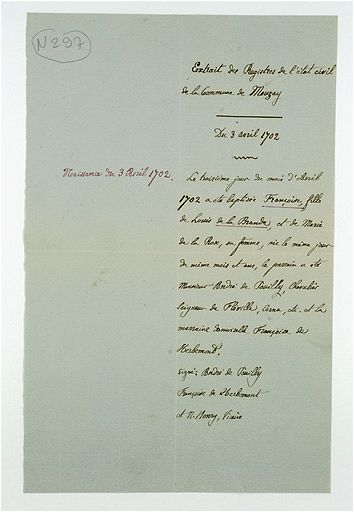 N 297
Extrait des Registres de l'état civil
de la Commune de Mouzay
Du 3 avril 1702
Naissance du 3 Avril 1702.
Le troisième jour du mois d'Avril
1702 a été baptisée Françoise, fille
de Louis de la Brande, et de Marie
de la Roze, sa femme, née le même jour
de même mois et ans, le parrain a été
Monsieur André de Pouilly, Chevalier
Seigneur de Fléville, Corna, etc. et la
marraine demoiselle Françoise de
Herbemont.
signé: André de Pouilly
Françoise de Herbemont
et N. Henry, Vicaire